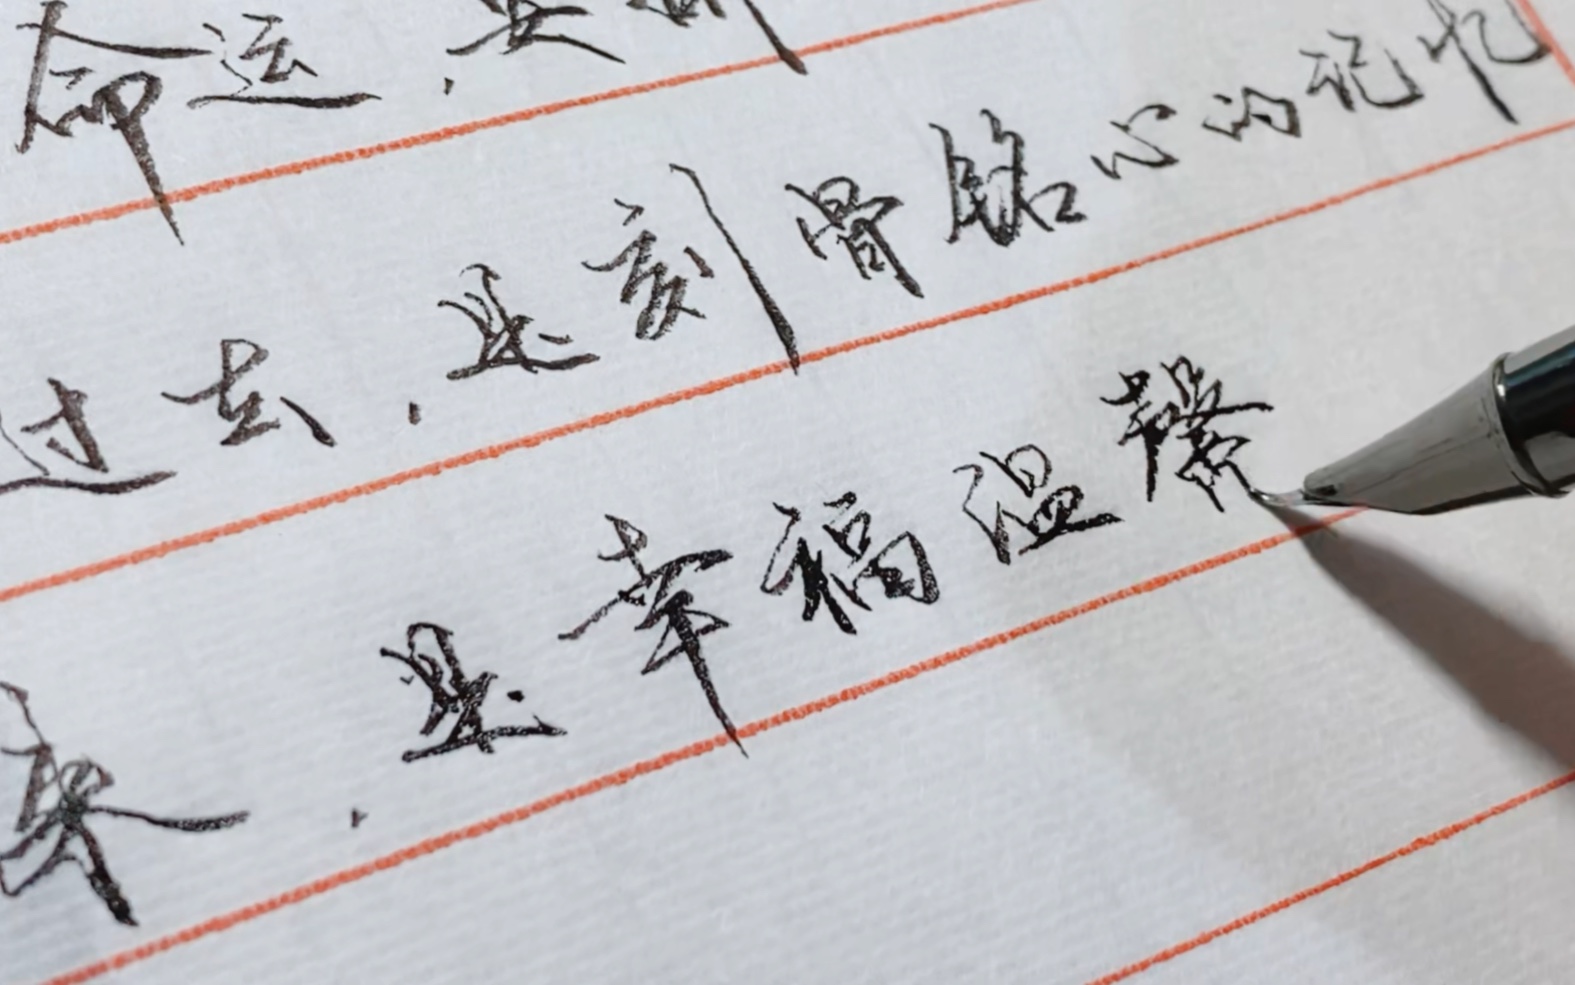 命运,要
过去,是刻骨铭心的记忆
来,是幸福温馨